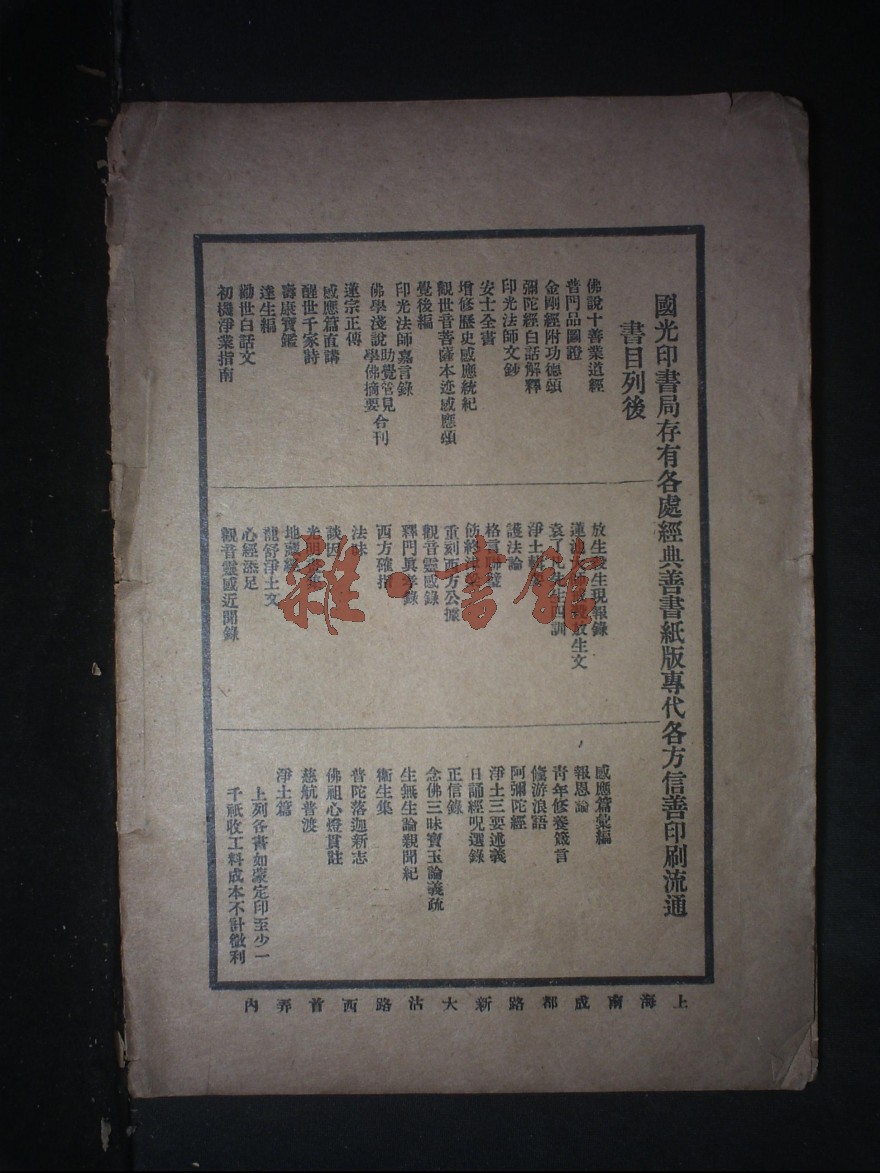 國光印書局存有各處經典善書紙版專代各方信善印刷流通
書目列後
佛說十善業道經
普門品圖證
金剛經附功德頌
彌陀經白話解釋
印光法師文鈔
安士全書
增修歷史感應統紀
觀世音菩薩本迹感應頌
覺後編
印光法師嘉言錄
佛學淺說助覺管見學佛摘要合刊
蓮宗正傳
感應篇直講
醒世千家詩
壽康寶鑑
達生編
勸世白話文
初機淨業指南
放生殺生現報錄
蓮池大師戒殺放生文
袁了凡先生四訓
淨土輯要
護法論
格言聯璧
飭終津梁
重刻西方公據
觀音靈感錄
釋門眞孝錄
西方確指
法味
談因
光明
地藏經
龍舒淨土文
心經添足
觀音靈感近聞錄
感應篇彙編
報恩論
靑年修養箴言
修游浪語
阿彌陀經
淨土三要述義
日誦經咒選錄
正信錄
念佛三昧寶王論義疏
生無生論親聞紀
衞生集
普陀落迦新志
佛祖心燈貫註
慈航普渡
淨土篇
上列各書如蒙定印至少一
千祇收工料成本不計微利
上海南成都路新大沽路西首弄內
雜·書館